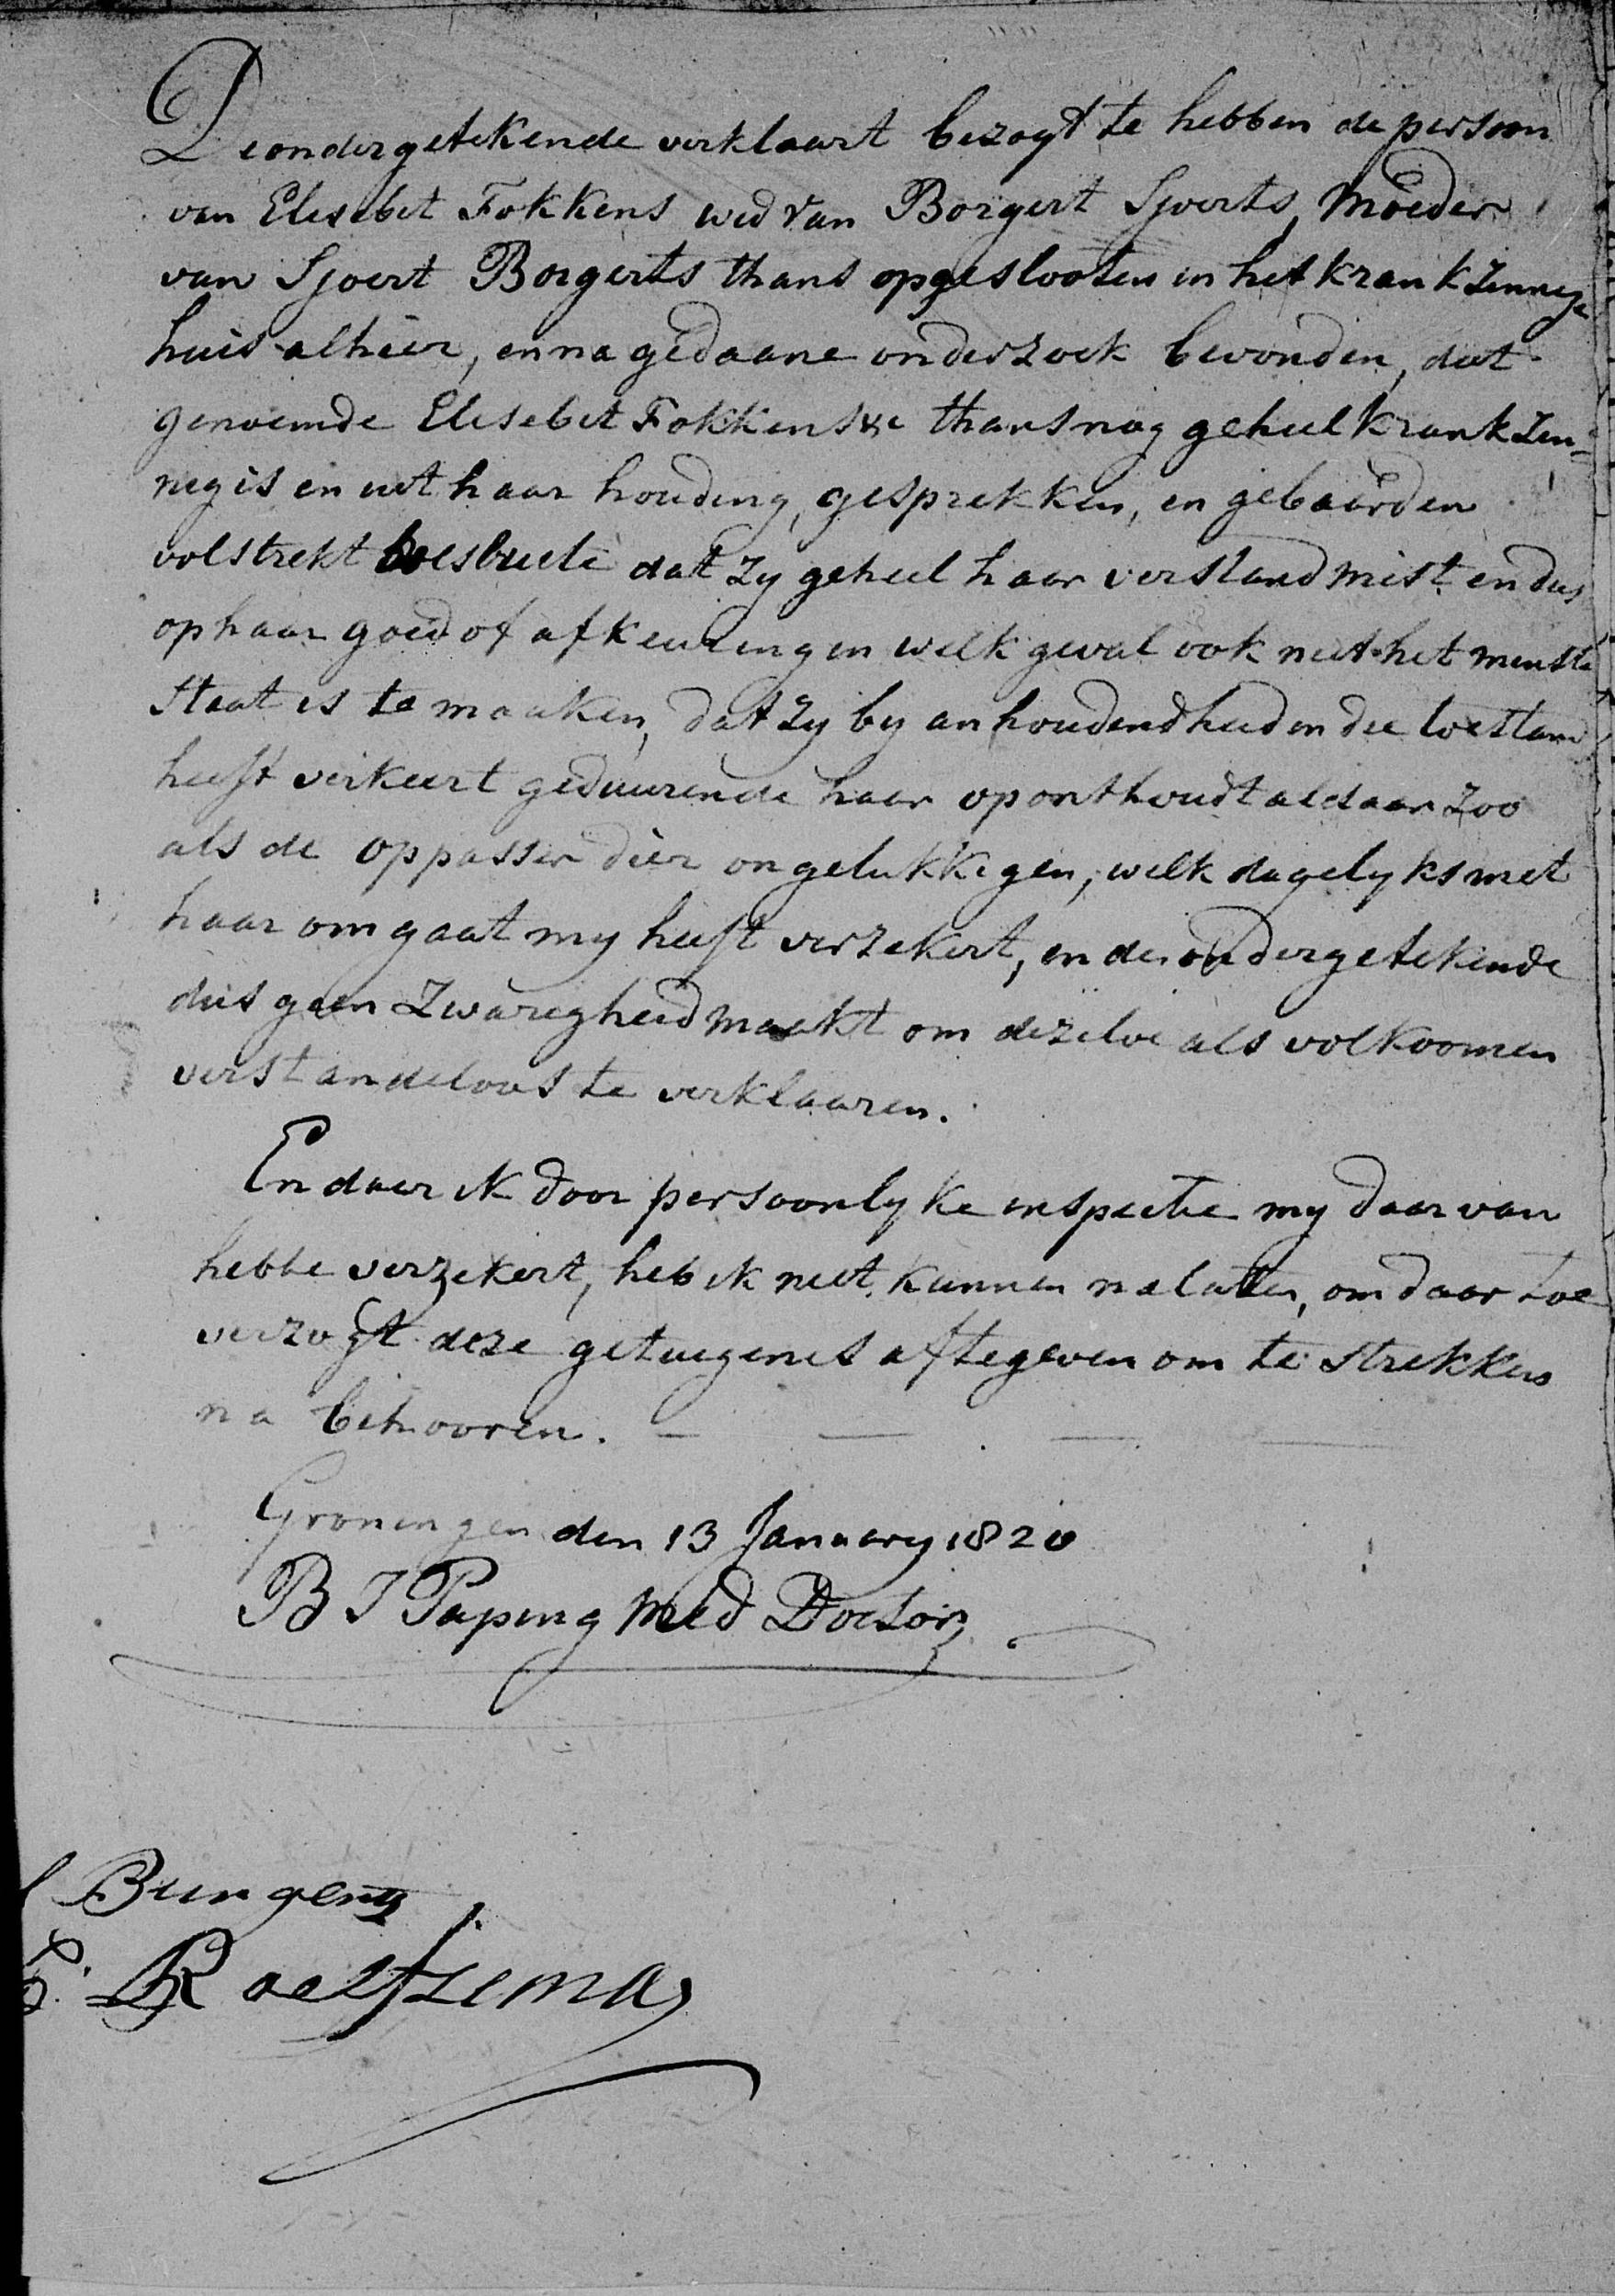 De ondergetekende verklaart bezogt te hebben de persoon
van Elisebet Fokkens wed van Borgert Sjoerts, Moeder
van Sjoert Borgerts thans opgeslooten in het krankzinnige
huis alhier, en na gedaane onderzoek bevonden, dat
genoemde Elisebet Fokkens thans nog geheel krankzin=
nig is en uit haar houding, gesprekken, en gebaarden
volstrekt dat zy geheel haar verstand mist en dus
op haar goed of afkeuring in welk geval ook niet het minste
Staat is te maaken, dat zy by anhoudendheid in die toestand
heeft verkeert geduurende haar oponthoudt aldaar zoo
als de oppasser dier ongelukkigen, welk dagelyks met
haar omgaat my heeft verzekert, en de ondergetekende
dus geen Zwarigheid maakt om dezelve als volkoomen
verstandeloos te verklaaren.
En daar ik door persoonlyke inspectie my daar van
hebbe verzekert, heb ik niet kunnen nalaten, om daar toe
verzogt deze getuigenis aftegeven om te strekken
na behooren.
Groningen den 13 January 1820
B J Paping Med Doctor
Bungeng
Roelfsema